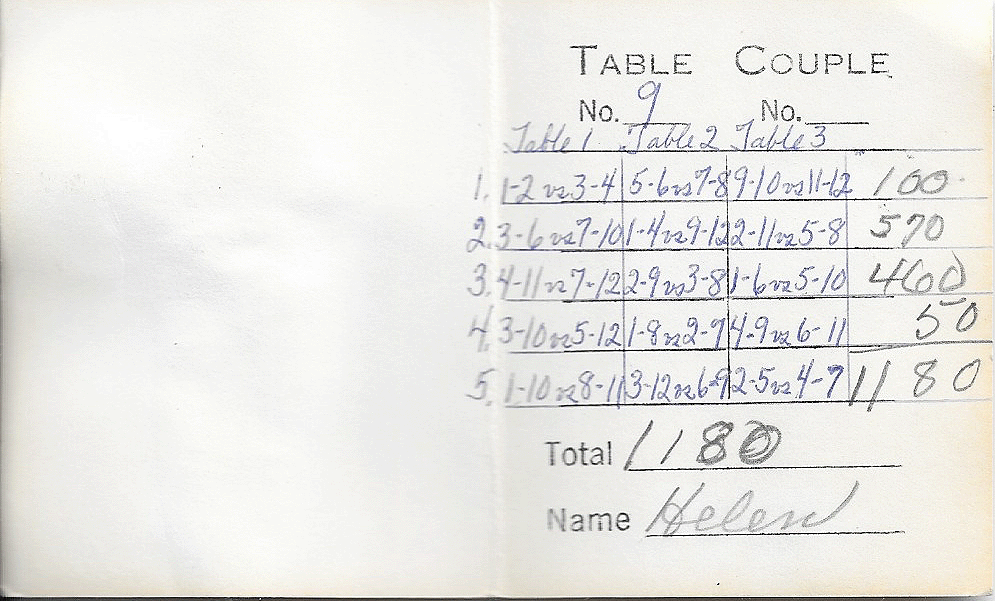 TABLE COUPLE
No. 9 No.
Table 1 Table 2 Table 3
1. 1-2 vs 3-4 5-6 vs 7-8 9-10 vs 11-12 100
2. 3-6 vs 7-10 1-4 vs 9-12 2-11 vs 5-8 570
3. 4-11 vs 7-12 2-9 vs 3-8 1-6 vs 5-10 460
4. 3-10 vs 5-12 1-8 vs 2-7 4-9 vs 6-11 50
5. 1-10 vs 8-11 3-12 vs 6-9 2-5 vs 4-7 1180
Total 1180
Name Helen